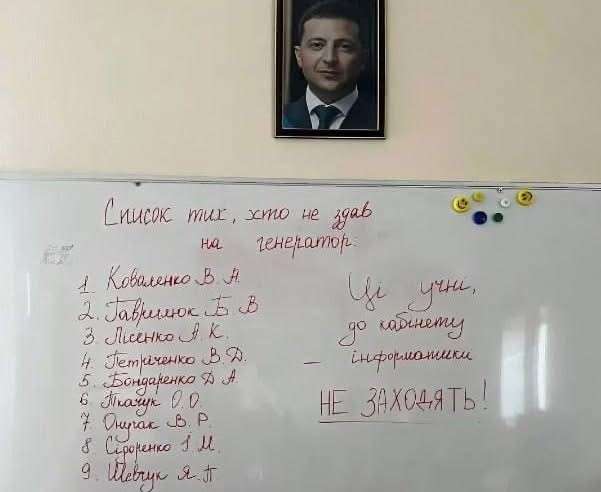 Список тих, хто не здав
на генератор:
1 Коваленко В. А.
2. Гаврилюк Б В
3. Лісенко А. К.
4 Петриченко В. Д.
5. Бондаренко Д А.
6 Ткачук О. О.
7 Онучак В. Р.
8 Сідоренко І М.
9. Шевчук Я. П
Ці учні,
до кабінету
– інформатики
НЕ ЗАХОДЯТЬ!